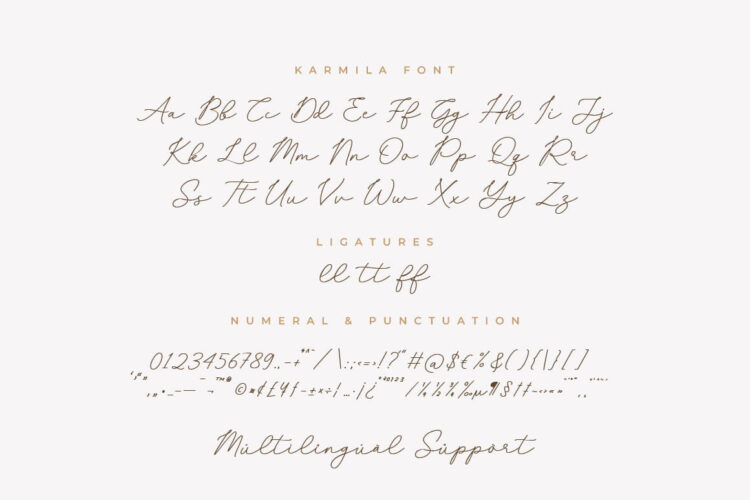 KARMILA FONT
Aa Bb Cc Dd Ee Ff Gg Hh Ii Jj
Kk Ll Mm Nn Oo Pp Qq Rr
Ss Tt Uu Vv Ww Xx Yy Zz
LIGATURES
ll tt ff
NUMERAL & PUNCTUATION
0123456789..-+ / \ :;<=>!? # @ $ € % & ( ) { | } [ ]
™® © ¤ ¢ £ ¥ f - ± × ÷ ¦ … · ¡ ¿ / ¼ ½ ¾ ‰ µ ¶ § † ‡
Múltilingúál Súppórt